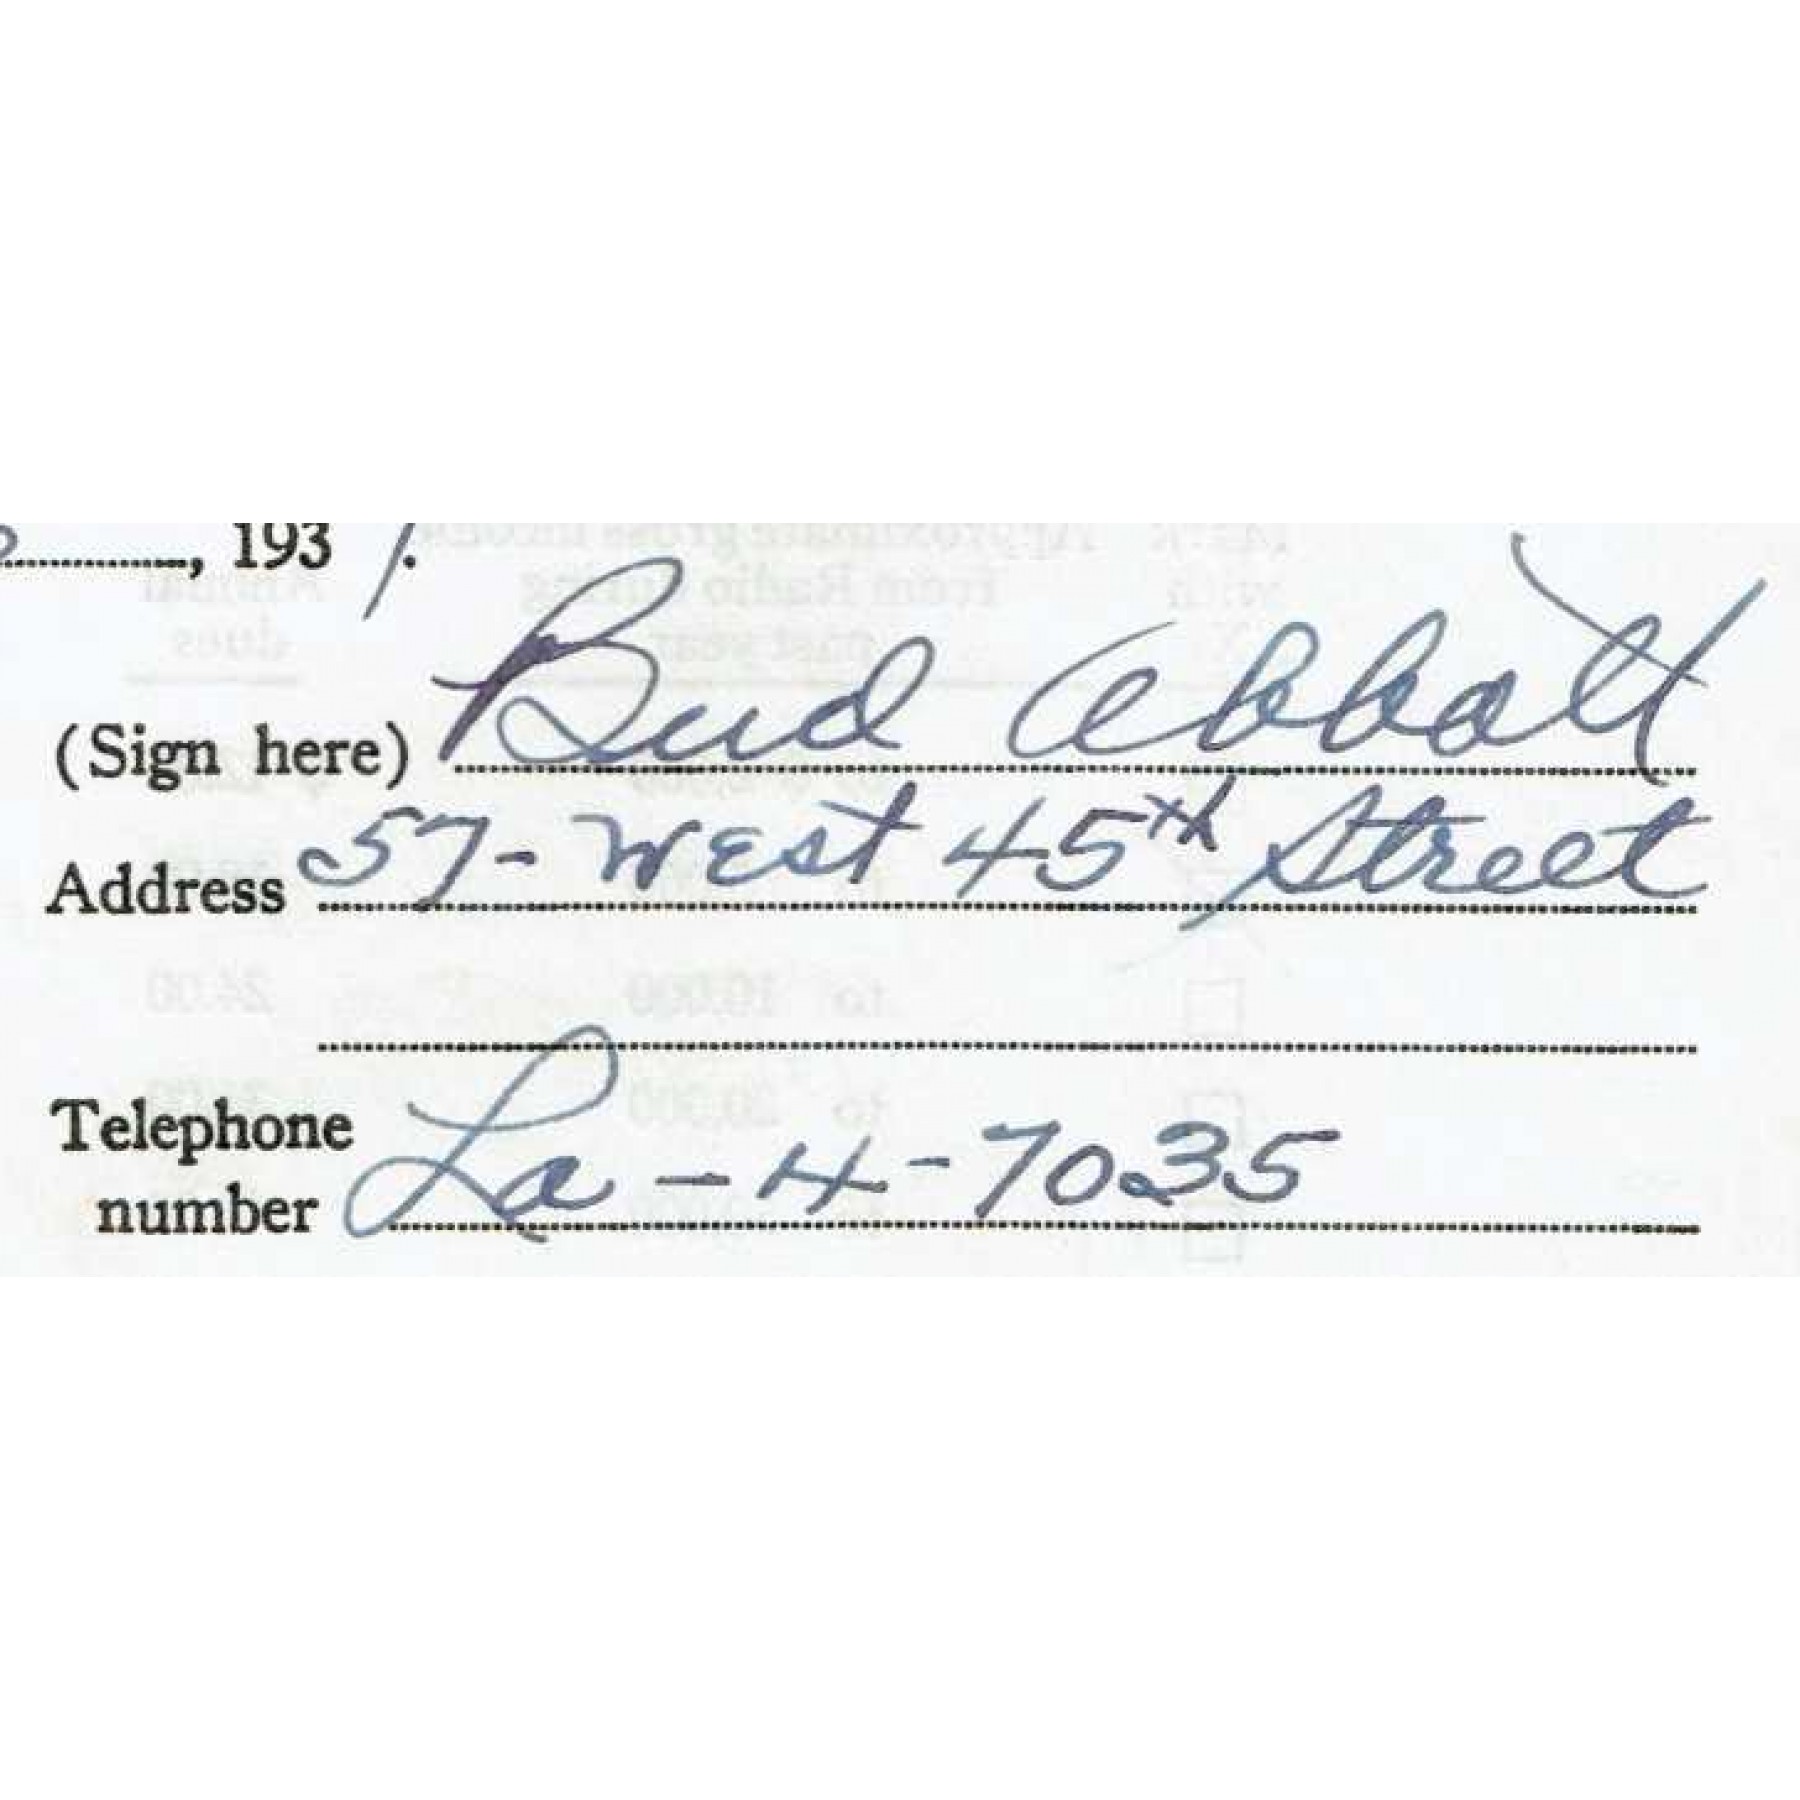 , 193 .
(Sign here) Bud Abbott
Address 57- West 45th Street
Telephone
number La-4-7035